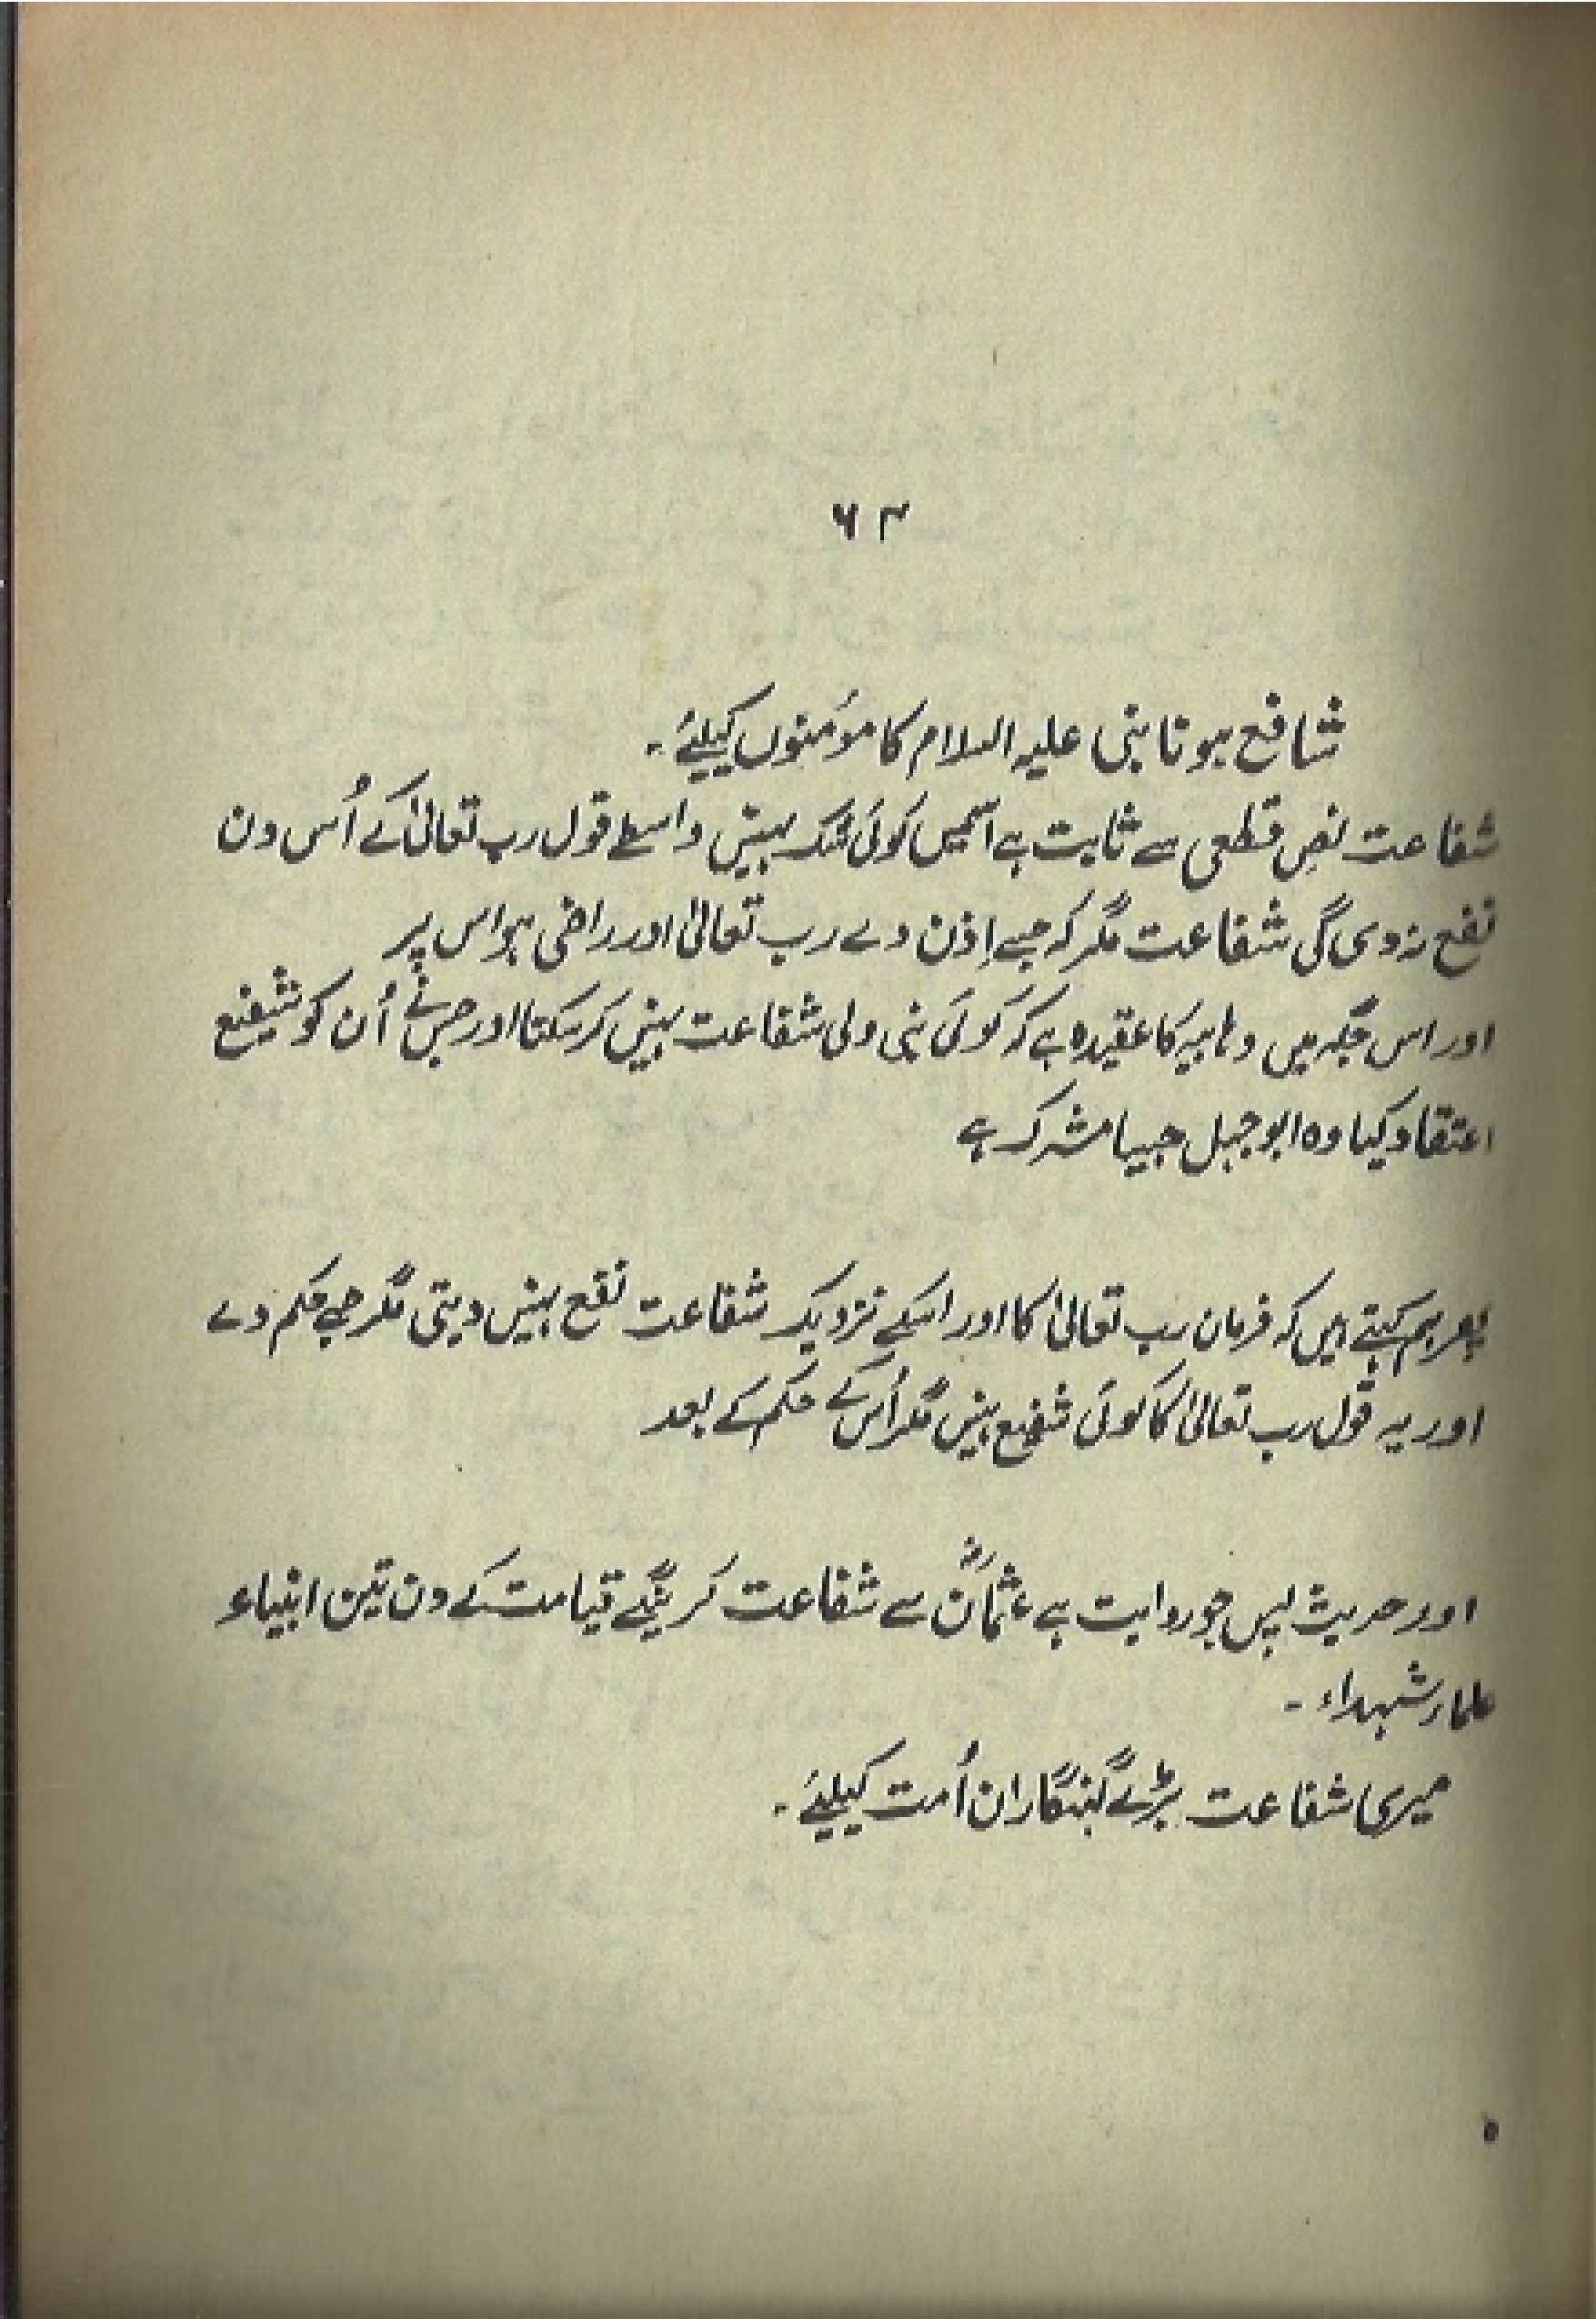 ۶۴
شافع ہونا نبی علیہ السلام کا مؤمنوں کیلئے ۔
شفاعت نصِ قطعی سے ثابت ہے اسمیں کوئی شک نہیں واسطے قول رب تعالیٰ کے اُس دن
نفع نہ دی گی شفاعت مگر کہ جسے اِذن دے رب تعالیٰ اور راضی ہو اس پر
اور اس جگہ میں وہابیہ کا عقیدہ ہے کہ کوئی نبی ولی شفاعت نہیں کر سکتا اور جس نے اُن کو شفیع
اعتقاد کیا وہ ابو جہل جیسا مشرک ہے
پھر ہم کہتے ہیں کہ فرمان رب تعالیٰ کا اور اسکے نزدیک شفاعت نفع نہیں دیتی مگر جسے حکم دے
اور یہ قول رب تعالیٰ کا کوئی شفیع نہیں مگر اُس کے حکم کے بعد
اور حدیث پس جو روایت ہے عثمانؓ سے شفاعت کرینگے قیامت کے دن تین انبیاء
علماء شہداء ۔
میری شفاعت بڑے گنہگاران اُمت کیلئے ۔